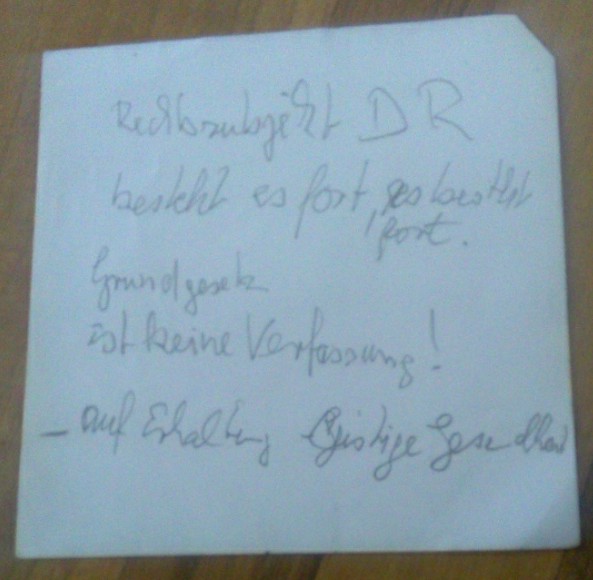 Rechtssubjekt DR
besteht es fort, es besteht
fort.
Grundgesetz
ist keine Verfassung!
- auf Erhaltung geistige Gesundheit